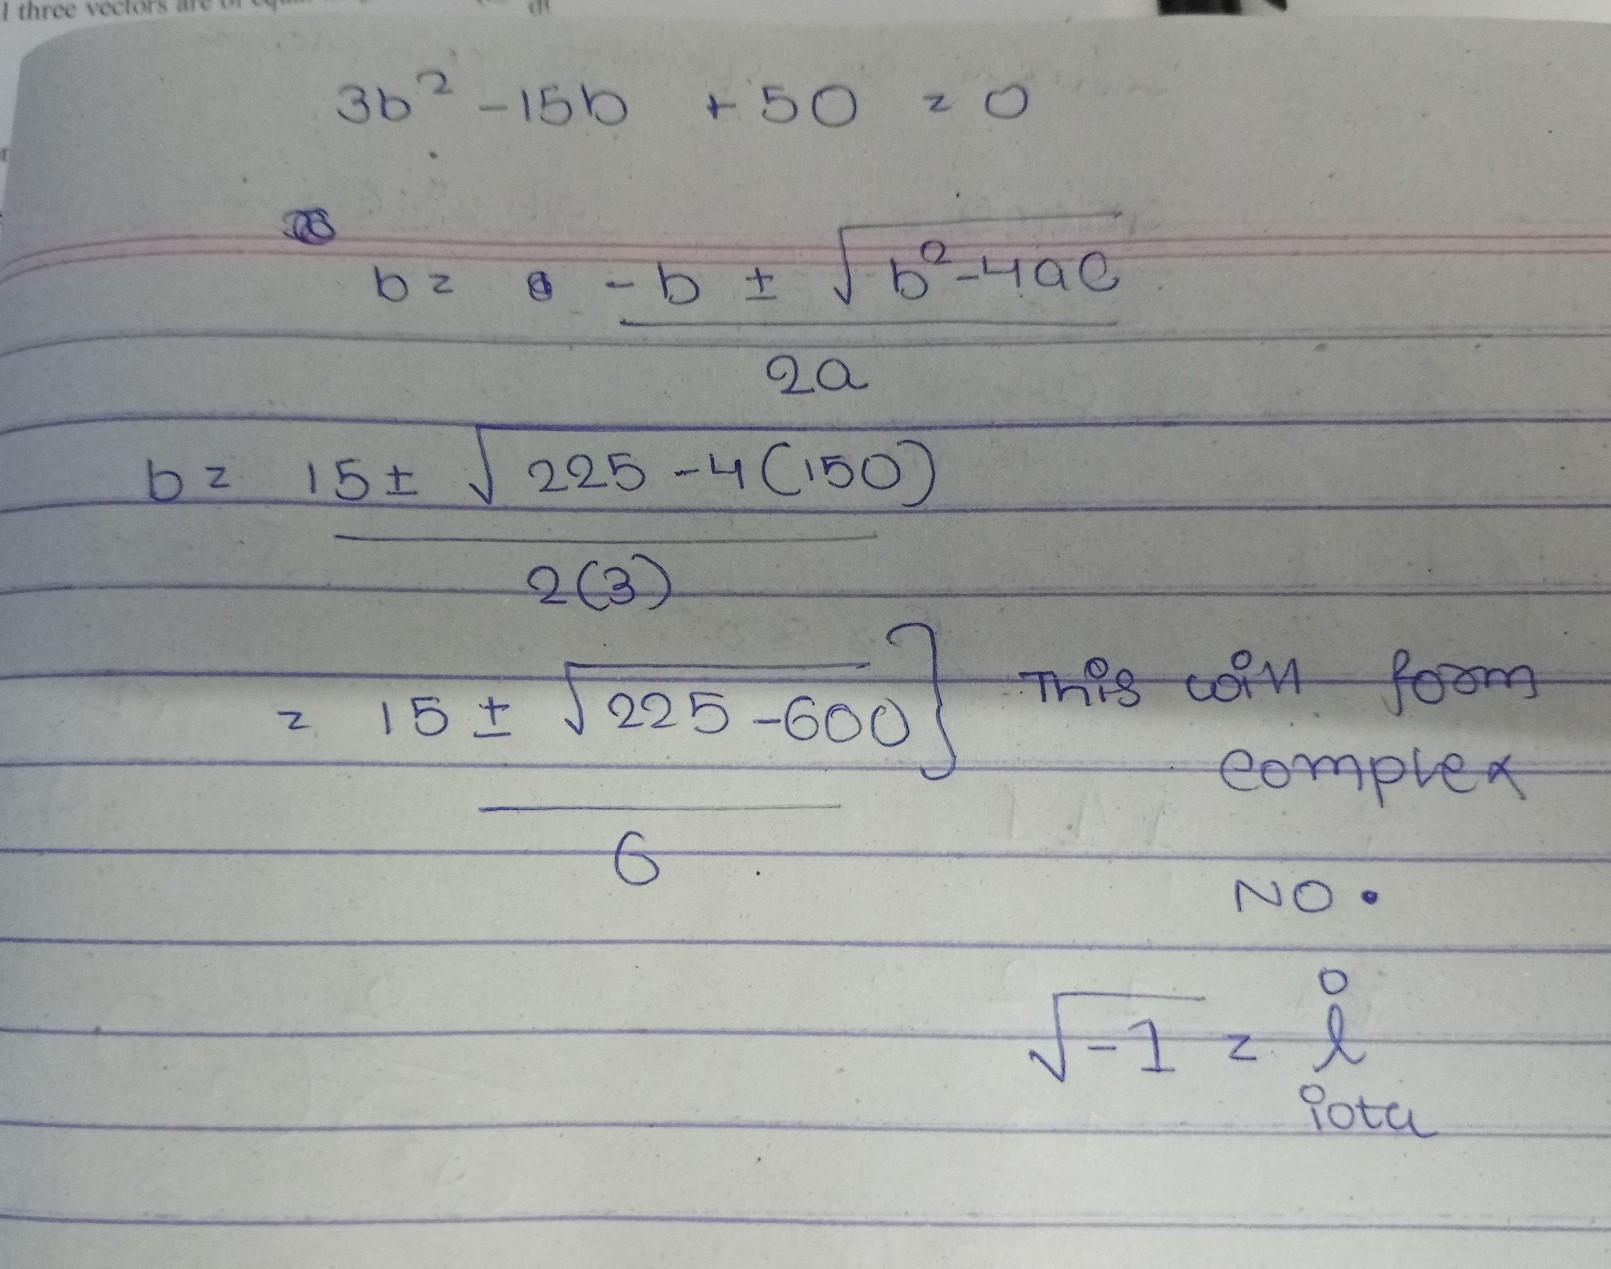 l three vectors are of equ
dt
3b² -15b + 50 = 0
b = -b ± √b²-4ac
2a
b = 15 ± √225 -4(150)
2(3)
= 15 ± √225-600 } This will form
6
complex
NO.
√-1 = i
iota